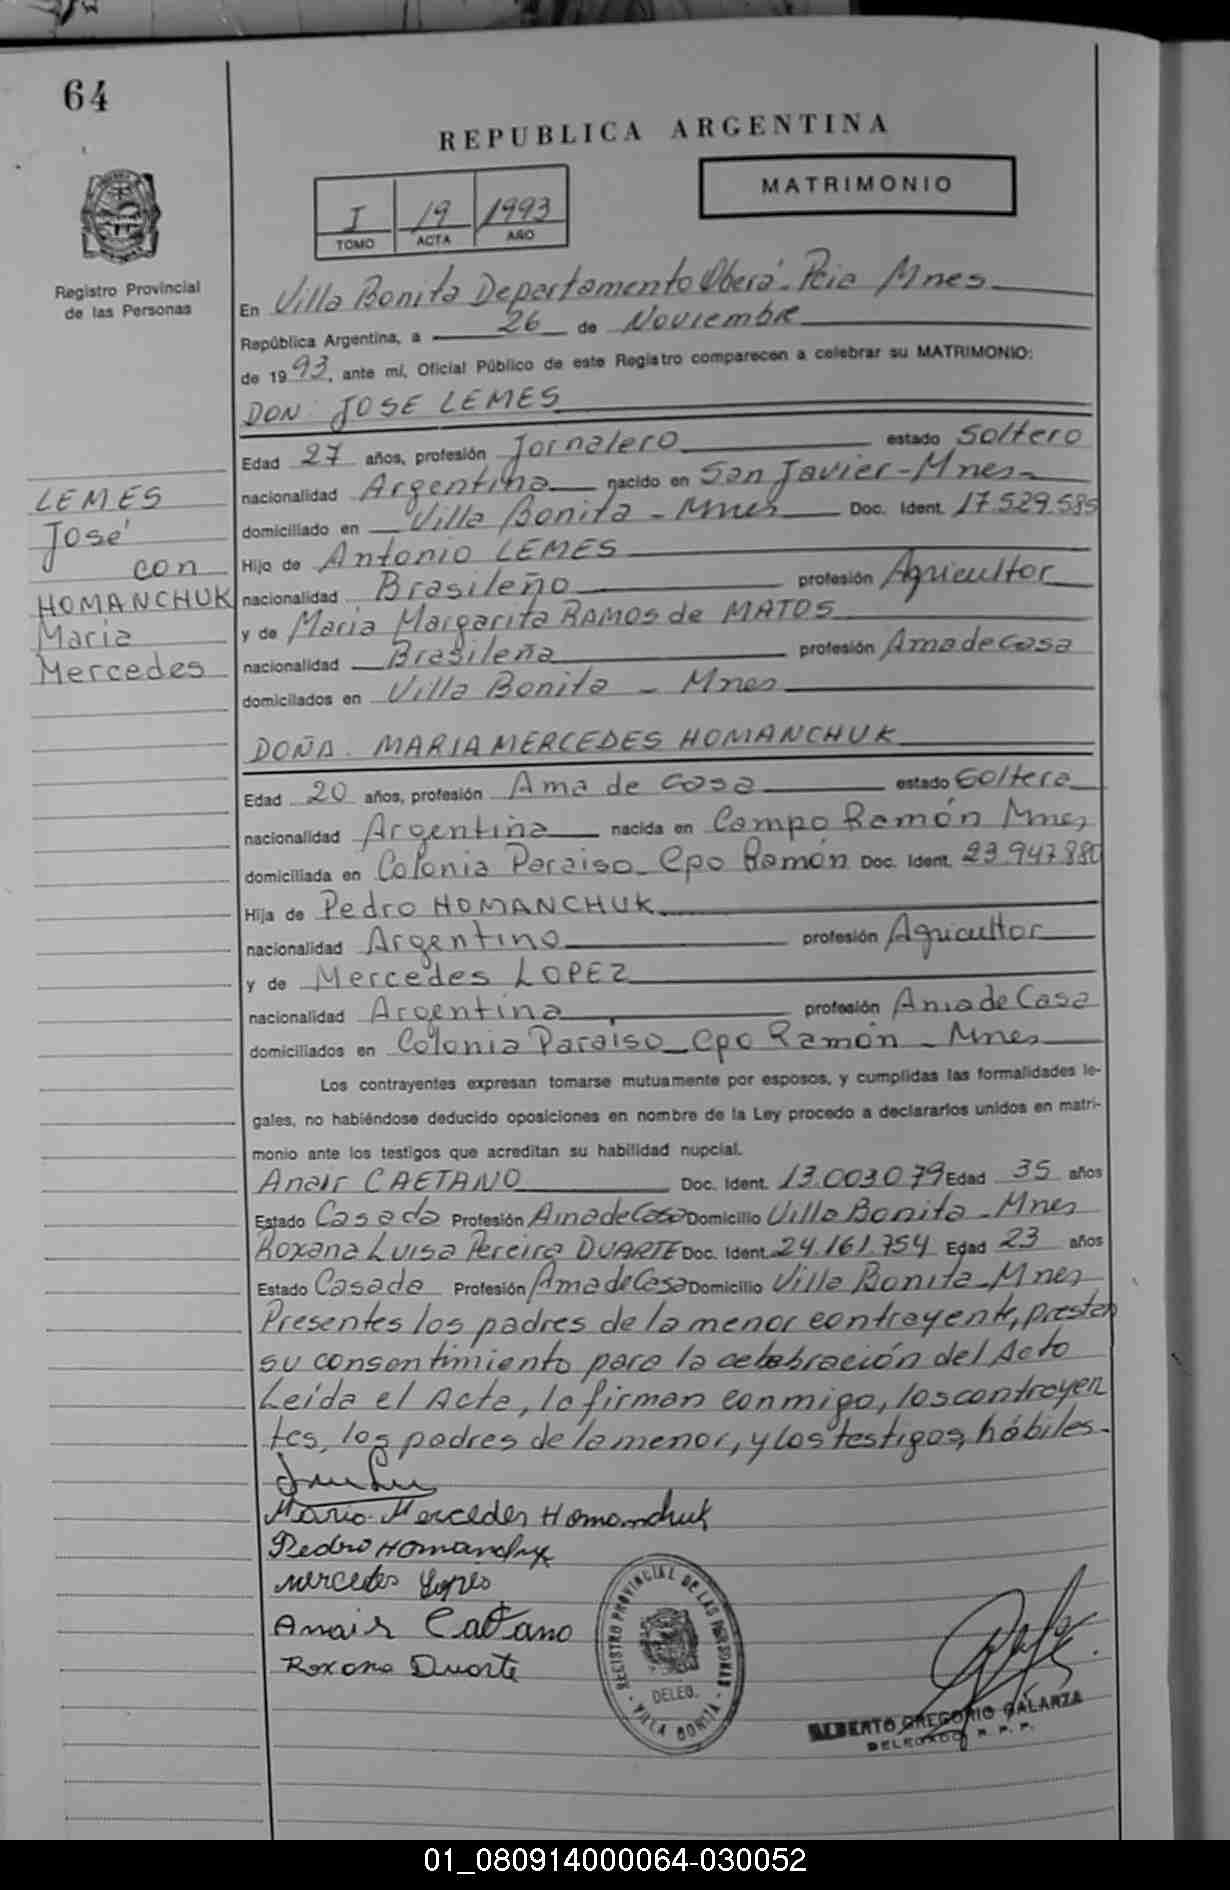 64
REPUBLICA ARGENTINA
MATRIMONIO
I 19 1993
TOMO ACTA AÑO
Registro Provincial
de las Personas
En Villa Bonita Departamento Oberá - Pcia Mnes
República Argentina, a 26 de Noviembre
de 1993, ante mí, Oficial Público de este Registro comparecen a celebrar su MATRIMONIO:
DON: JOSE LEMES
Edad 27 años, profesión Jornalero estado Soltero
nacionalidad Argentina nacido en San Javier - Mnes
domiciliado en Villa Bonita - Mnes Doc. Ident. 17.529.585
Hijo de Antonio LEMES
nacionalidad Brasileño profesión Agricultor
y de Maria Margarita RAMOS de MATOS
nacionalidad Brasileña profesión Ama de Casa
domiciliados en Villa Bonita - Mnes
LEMES
José
con
HOMANCHUK
Maria
Mercedes
DOÑA. MARIA MERCEDES HOMANCHUK
Edad 20 años, profesión Ama de Casa estado Soltera
nacionalidad Argentina nacida en Campo Ramón Mnes
domiciliada en Colonia Paraiso - Cpo Ramón Doc. Ident. 23.947.880
Hija de Pedro HOMANCHUK
nacionalidad Argentino profesión Agricultor
y de Mercedes LOPEZ
nacionalidad Argentina profesión Ama de Casa
domiciliados en Colonia Paraiso - Cpo Ramón - Mnes
Los contrayentes expresan tomarse mutuamente por esposos, y cumplidas las formalidades le-
gales, no habiéndose deducido oposiciones en nombre de la Ley procedo a declararlos unidos en matri-
monio ante los testigos que acreditan su habilidad nupcial.
Anair CAETANO Doc. Ident. 13.003.079 Edad 35 años
Estado Casada Profesión Ama de Casa Domicilio Villa Bonita - Mnes
Roxana Luisa Pereira DUARTE Doc. Ident. 24.161.754 Edad 23 años
Estado Casada Profesión Ama de Casa Domicilio Villa Bonita - Mnes
Presentes los padres de la menor contrayente, prestan
su consentimiento para la celebración del Acto
Leída el Acta, la firman conmigo, los contrayen
tes, los padres de la menor, y los testigos, hábiles.-
Maria Mercedes Homanchuk
Pedro Homanchuk
Mercedes Lopes
Anair Caetano
Roxana Duarte
REGISTRO PROVINCIAL DE LAS PERSONAS
DELEG.
- VILLA BONITA -
ALBERTO GREGORIO GALARZA
DELEGADO R. P. P.
01_080914000064-030052